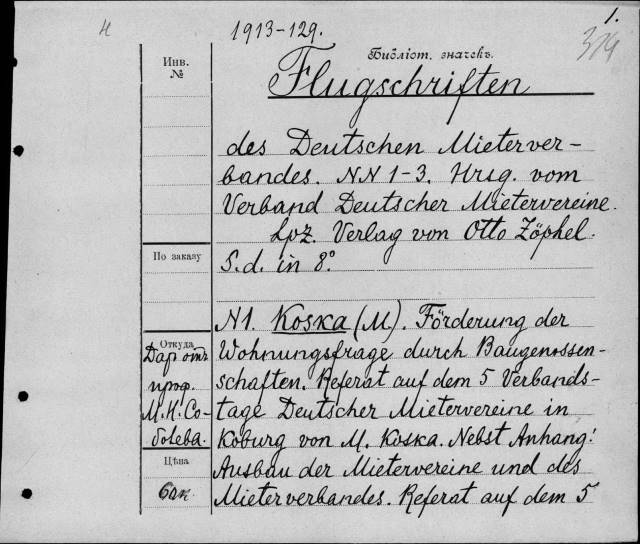 н
1913-129.
1.
374
Библіот. значекъ.
Инв.
№
Flugschriften
des Deutschen Mieterver-
bandes. NN 1-3. Hrsg. vom
Verband Deutscher Mietervereine.
Lpz. Verlag von Otto Zöphel.
S.d. in 8°.
По заказу
N1. Koska (M.). Förderung der
Wohnungsfrage durch Baugenossen-
schaften. Referat auf dem 5 Verbands-
tage Deutscher Mietervereine in
Koburg von M. Koska. Nebst Anhang:
Ausbau der Mietervereine und des
Mieterverbandes. Referat auf dem 5
Откуда
Дар отъ
проф.
М.Н. Со-
болева.
Цѣна
60к.